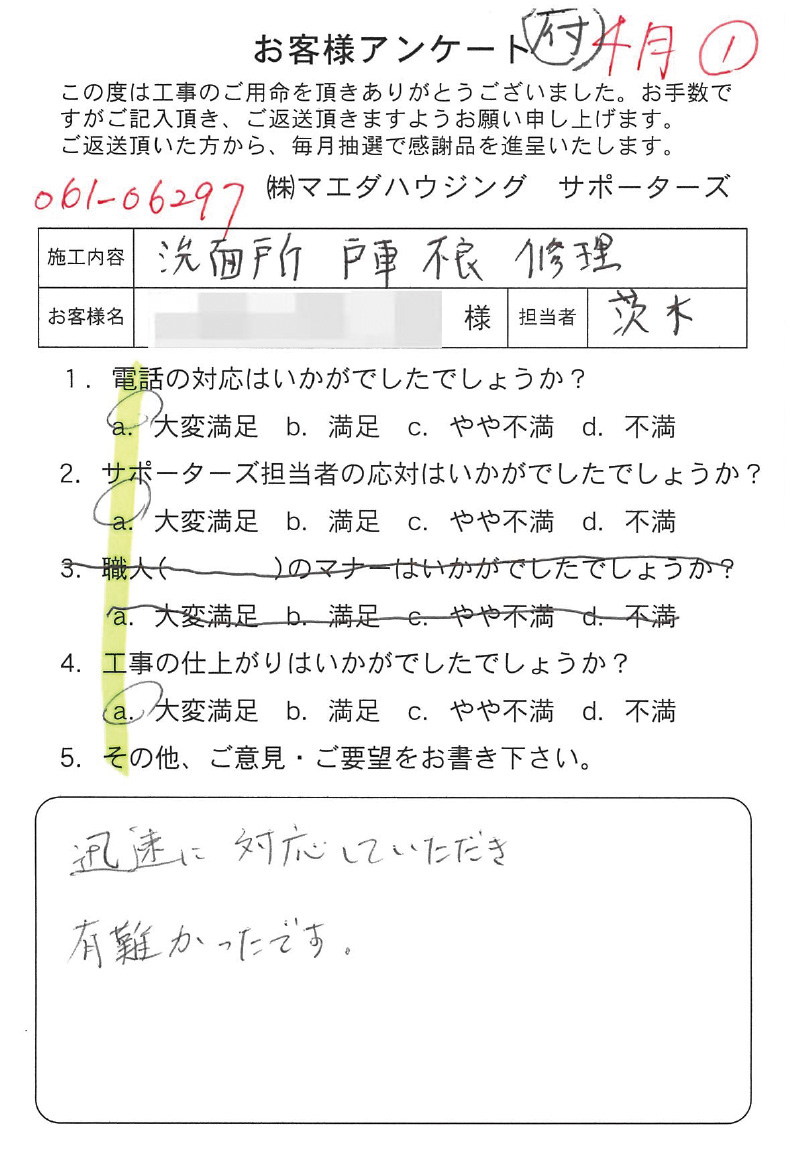 お客様アンケート 府 4月 ①
この度は工事のご用命を頂きありがとうございました。お手数で
すがご記入頂き、ご返送頂きますようお願い申し上げます。
ご返送頂いた方から、毎月抽選で感謝品を進呈いたします。
061-06297 ㈱マエダハウジング サポーターズ
施工内容 洗面所 戸車 不良 修理
お客様名 様 担当者 茨木
1. 電話の対応はいかがでしたでしょうか？
a. 大変満足 b. 満足 c. やや不満 d. 不満
2. サポーターズ担当者の応対はいかがでしたでしょうか？
a. 大変満足 b. 満足 c. やや不満 d. 不満
3. 職人( )のマナーはいかがでしたでしょうか？
a. 大変満足 b. 満足 c. やや不満 d. 不満
4. 工事の仕上がりはいかがでしたでしょうか？
a. 大変満足 b. 満足 c. やや不満 d. 不満
5. その他、ご意見・ご要望をお書き下さい。
迅速に 対応していただき
有難かったです。